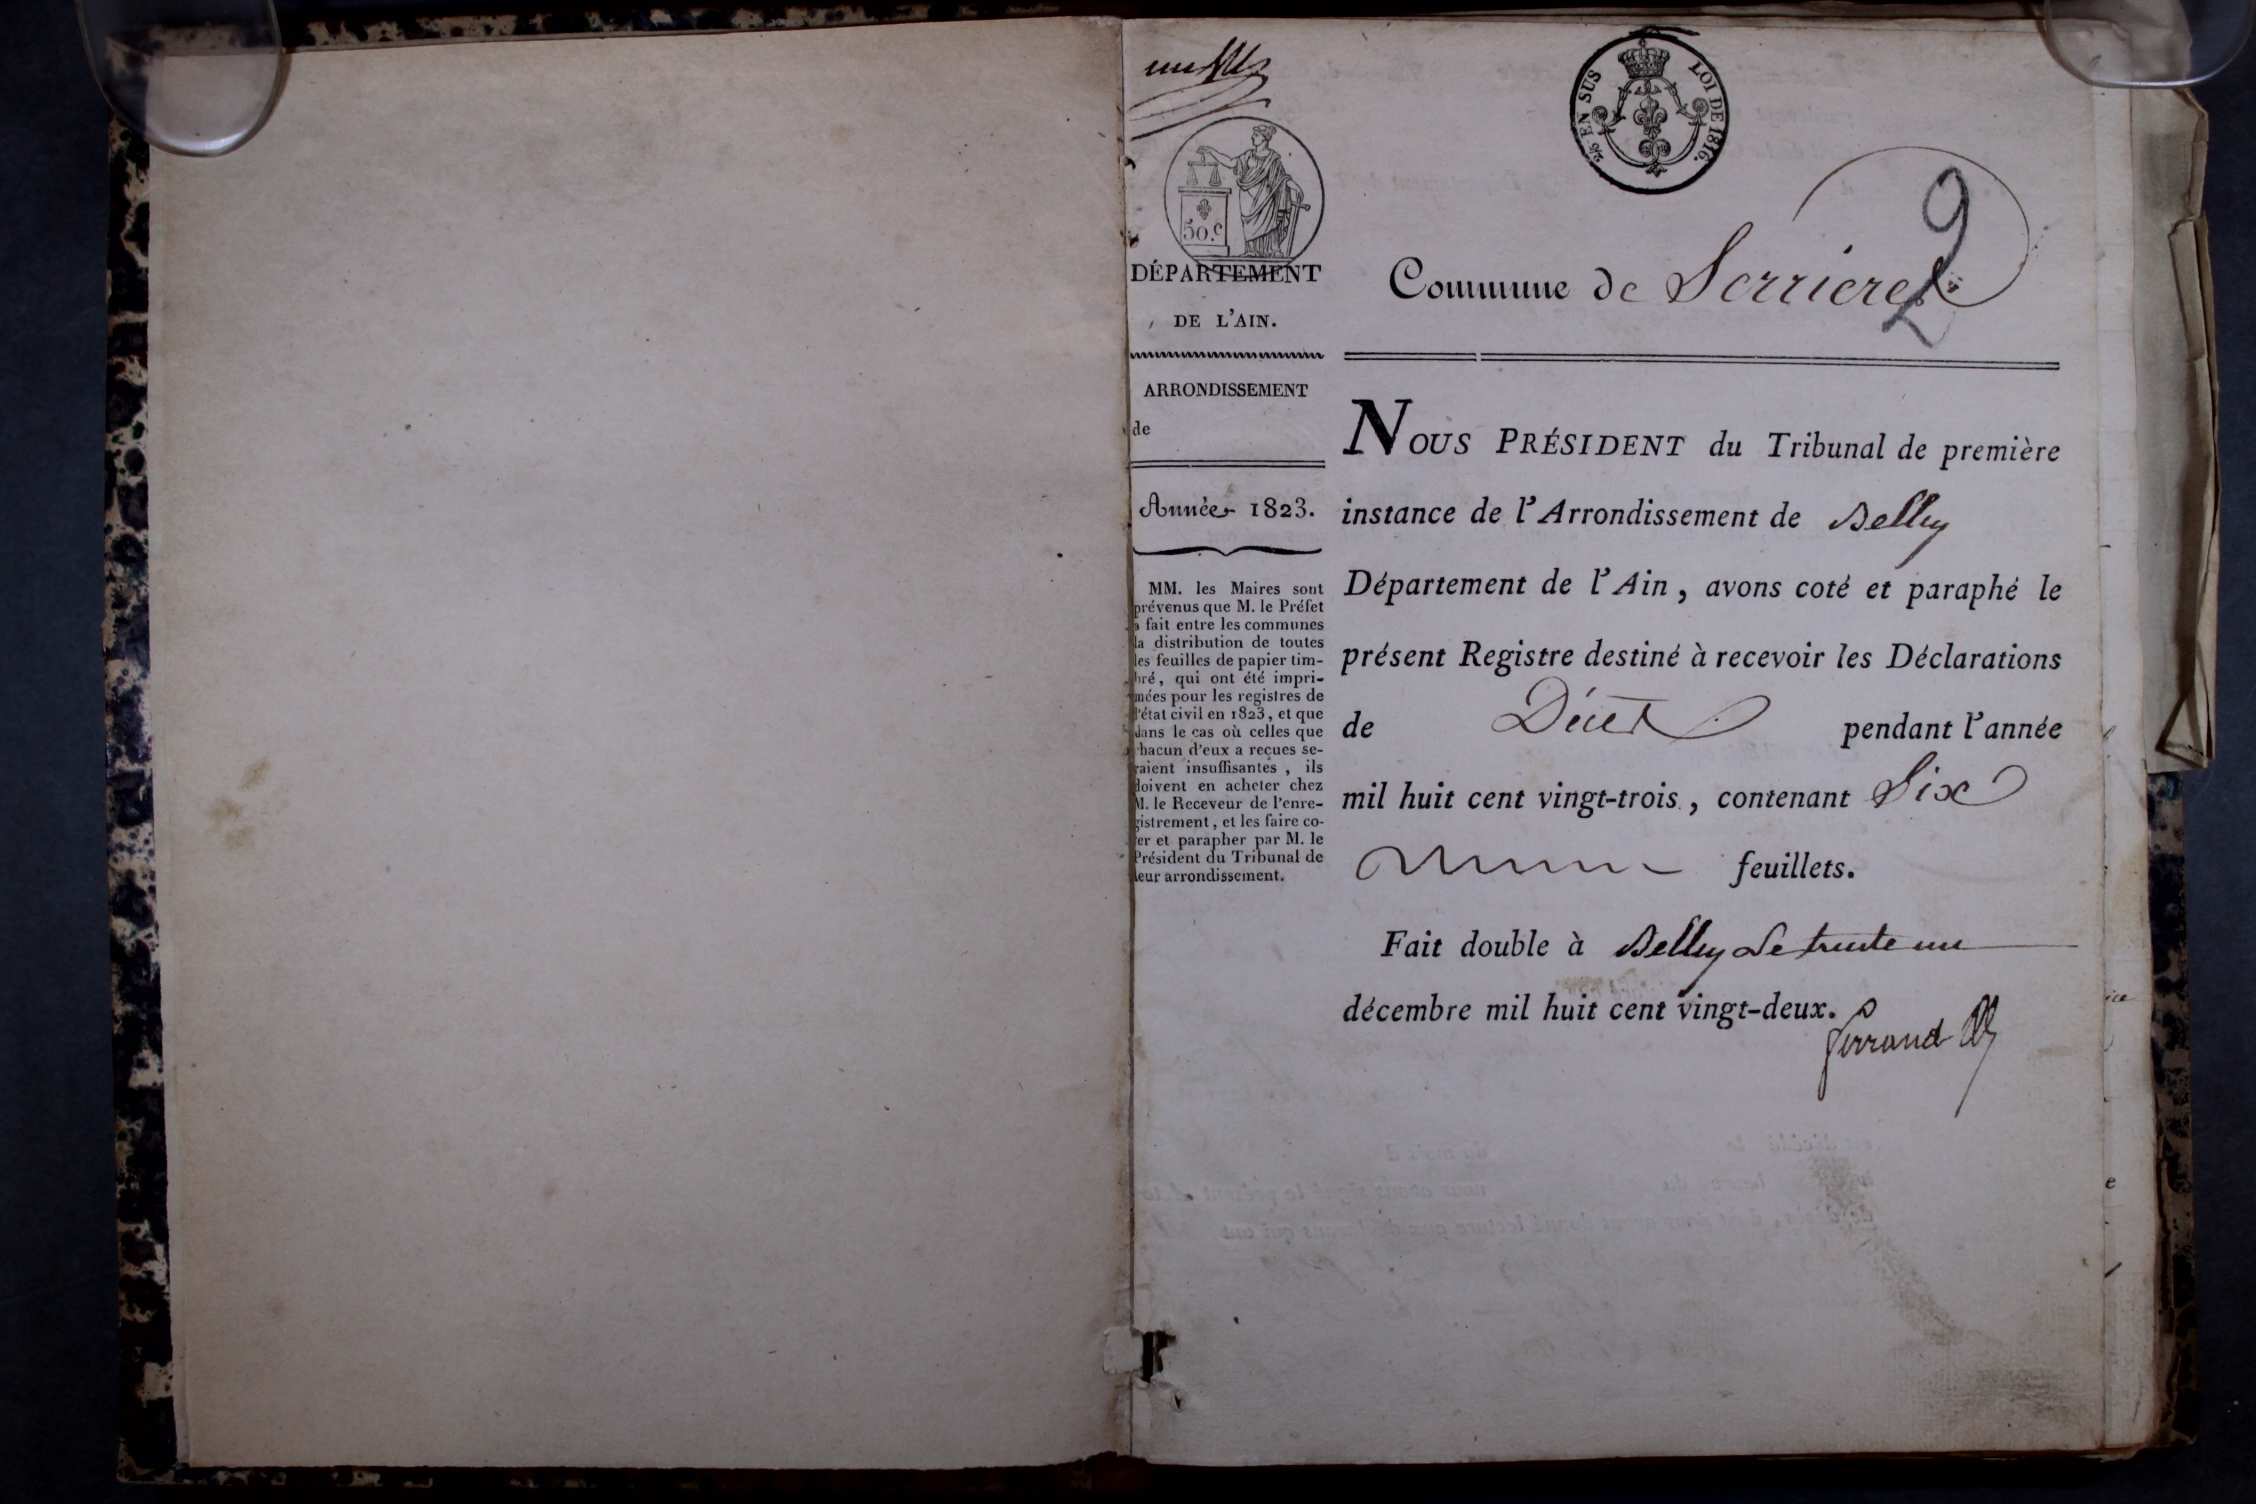 un
2/5 EN SUS LOI DE 1816.
50.c
DÉPARTEMENT
DE L'AIN.
ARRONDISSEMENT
de
Année 1823.
MM. les Maires sont
prévenus que M. le Préfet
a fait entre les communes
la distribution de toutes
les feuilles de papier tim-
bré, qui ont été impri-
mées pour les registres de
l'état civil en 1823, et que
dans le cas où celles que
chacun d'eux a reçues se-
raient insuffisantes, ils
doivent en acheter chez
M. le Receveur de l'enre-
gistrement, et les faire co-
ter et parapher par M. le
Président du Tribunal de
leur arrondissement.
2
Commune de Serrieres
NOUS PRÉSIDENT du Tribunal de première
instance de l'Arrondissement de Belley
Département de l'Ain, avons coté et paraphé le
présent Registre destiné à recevoir les Déclarations
de Décès pendant l'année
mil huit cent vingt-trois, contenant Six
feuillets.
Fait double à Belley Le trente un
décembre mil huit cent vingt-deux.